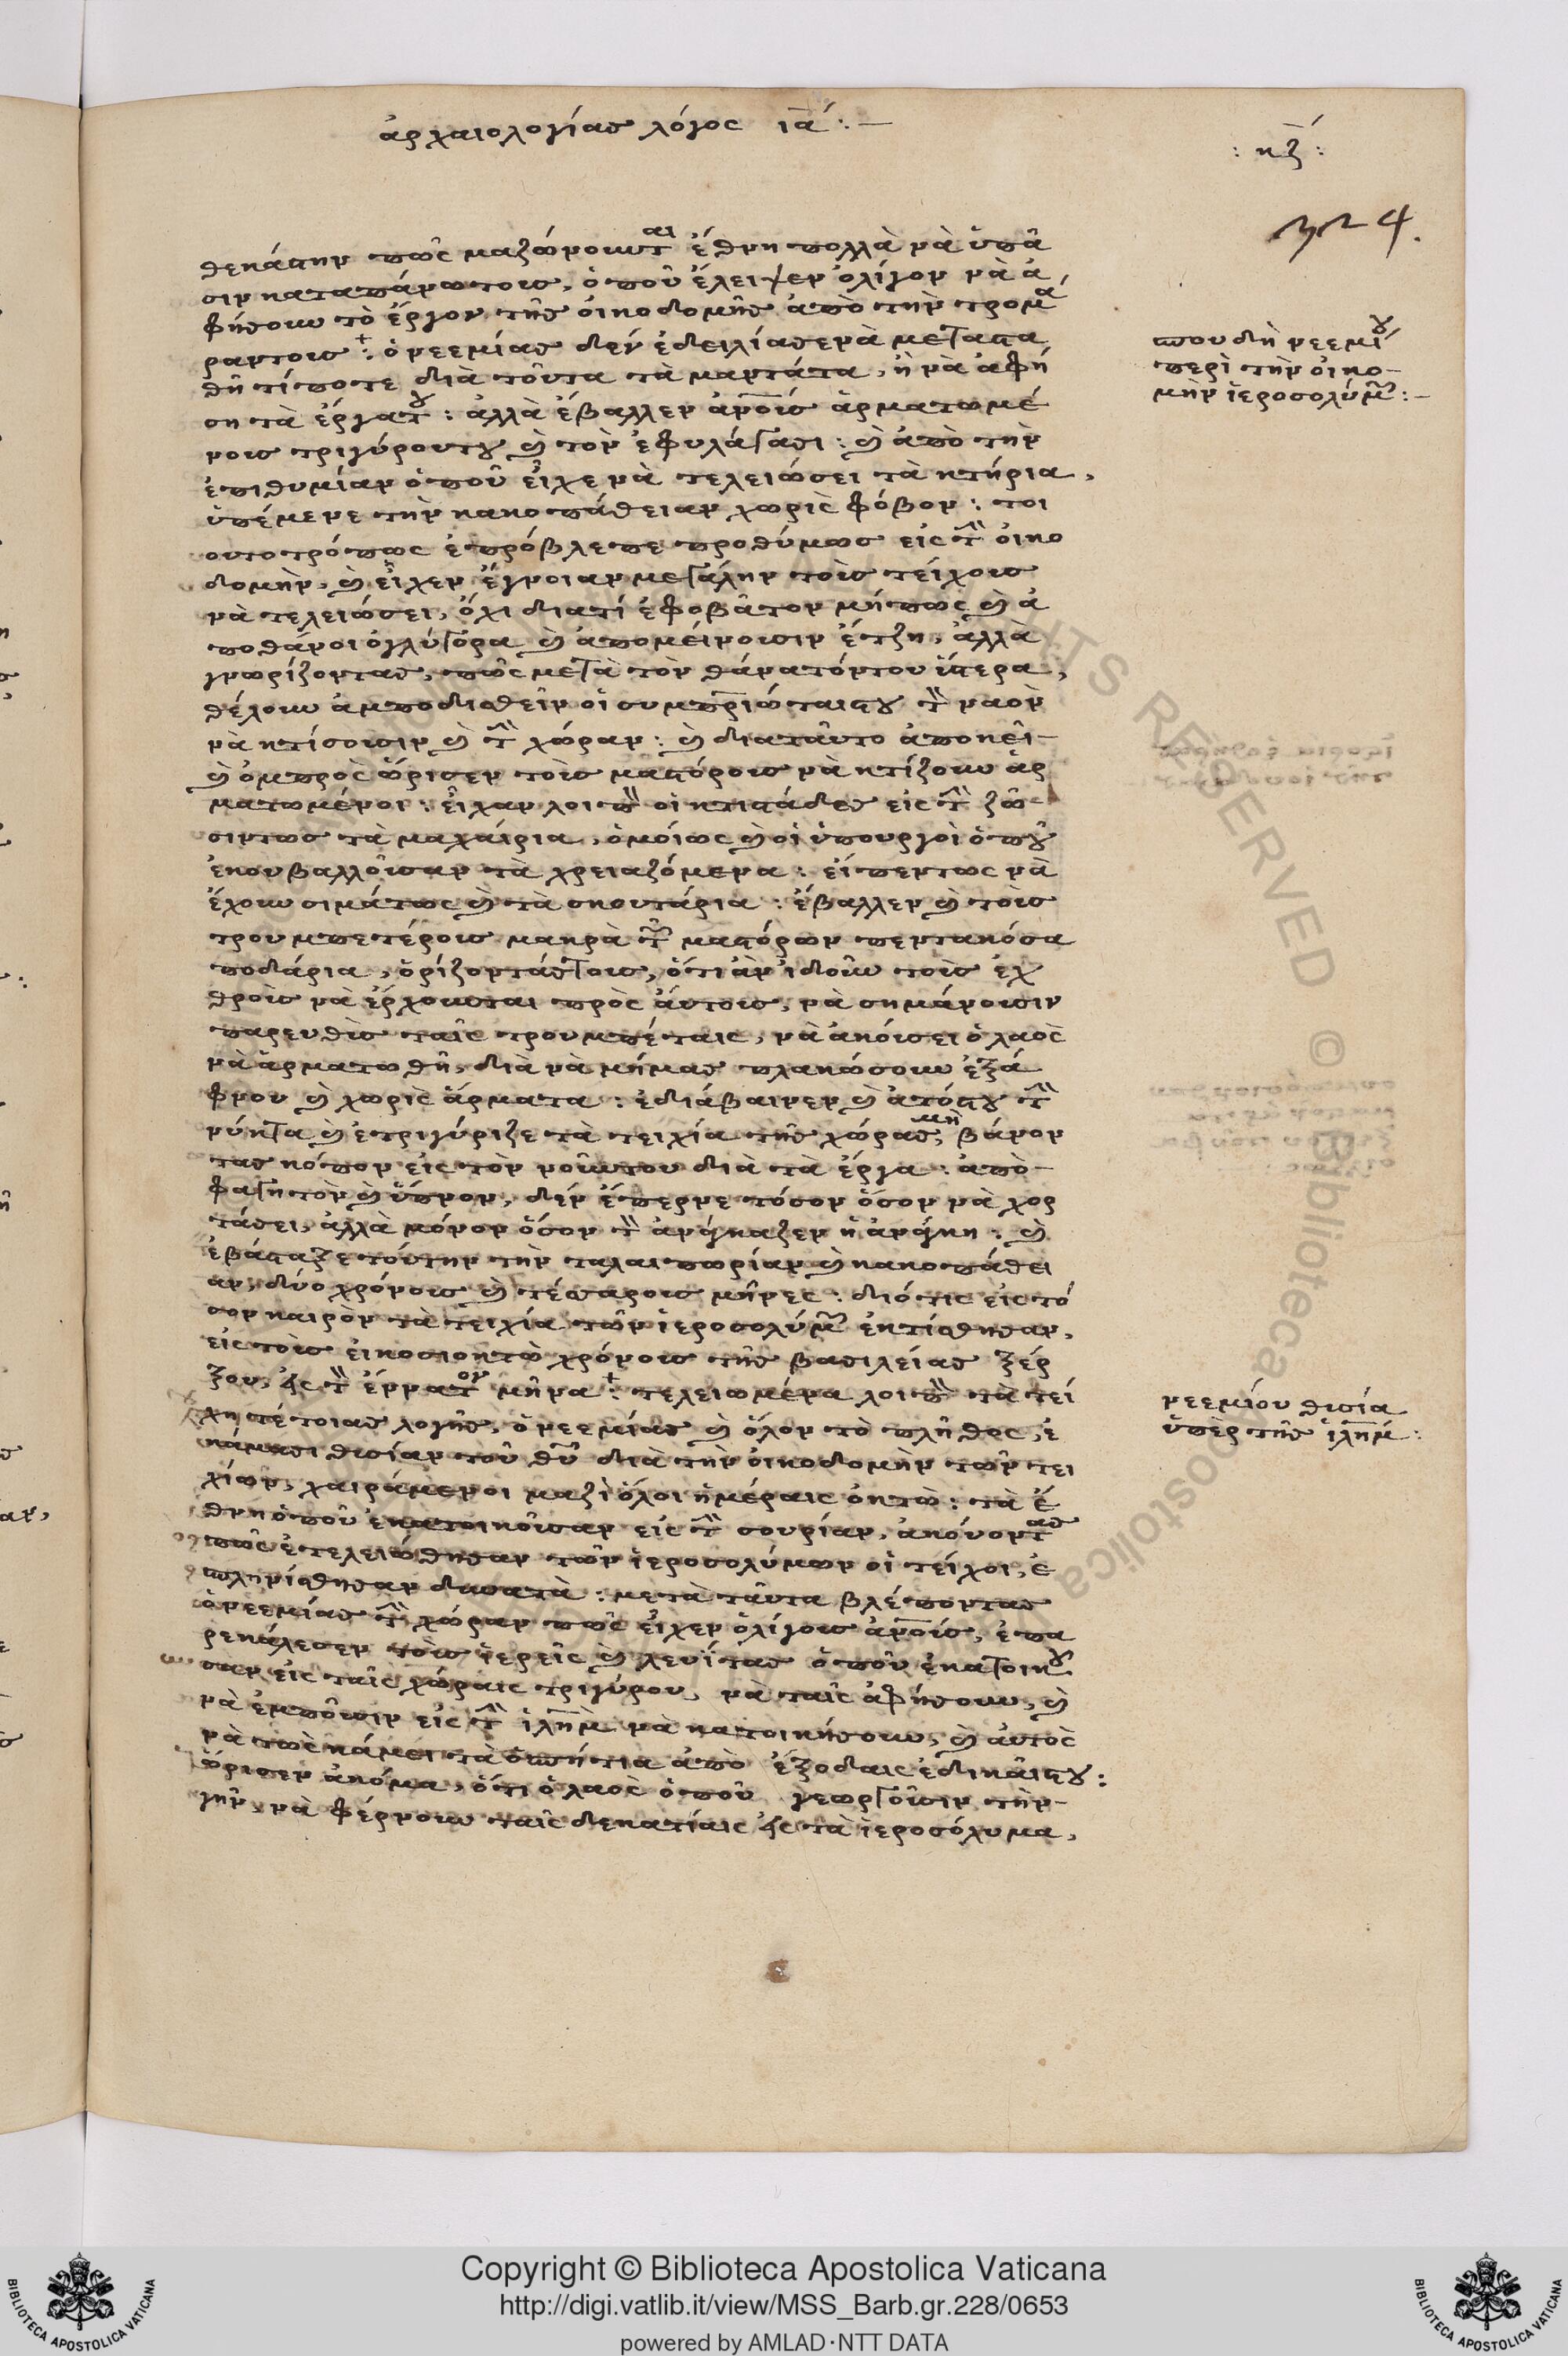 ἀρχαιολογίας λόγος ια´:—
: κξ :
324.
θεκάστην πῶς μαζώνουνται ἔθνη πολλὰ νὰ ὑπᾶ
σιν καταπάνωτους, ὁποῦ ἔλειψεν ὀλίγον νὰ ἀ
φήσουν τὸ ἔργον τῆς οἰκοδομῆς ἀπὸ τὴν τρομά
ραντους: ὁ νεεμίας δὲν ἐδειλίασε νὰ μεταστα
θῆ τίποτε διὰ τοῦντα τὰ μαντάτα, ἢ νὰ ἀφή
ση τὰ ἔργατου: ἀλλὰ ἔβαλλεν ἀνοὺς ἁρματωμέ
νους τριγύρουτου καὶ τὸν ἐφυλάγασι: καὶ ἀπὸ τὴν
ἐπιθυμίαν ὁποῦ εἶχε νὰ τελειώσει τὰ κτήρια,
ὑπέμενε τὴν κακοπάθειαν χωρὶς φόβον: τοι
ουτοτρόπως ἐπρόβλεπε προθύμως εἰς τὴν οἰκο
δομὴν, καὶ εἶχεν ἔγνοιαν μεγάλην τοὺς τείχους
νὰ τελειώσει, ὄχι διατί ἐφοβᾶτον μήπως καὶ ἀ
ποθάνοι ὀγλύγορα καὶ ἀπομείνουσιν ἔτζη, ἀλλὰ
γνωρίζοντας, πῶς μετὰ τὸν θάνατόντου ὕστερα,
θέλουν ἀμποδισθεῖν οἱ συμπριώταιστου τὸν ναὸν
νὰ κτίσουσιν καὶ τὴν χώραν: καὶ διαταῦτο ἀποκεῖ—
καὶ ὀμπρὸς ὥρισεν τοὺς μαστόρους νὰ κτίζουν ἁρ
ματωμένοι: εἶχαν λοιπὸν οἱ κτιστάδες εἰς τὴν ζῶ
σιντως τὰ μαχαίρια, ὁμοίως καὶ οἱ ὑπουργοὶ ὁποῦ
ἐκουβαλλοῦσαν τὰ χρειαζόμενα: εἴπεντως νὰ
ἔχουν σιμάτως καὶ τὰ σκουτάρια: ἔβαλλεν καὶ τοὺς
τρουμπετέρους μακρὰ τῶν μαστόρων πεντακόσα
ποδάρια, ὁρίζοντάςτους, ὅτι ἂν ἰδοῦν τοὺς ἐχ
θροὺς νὰ ἔρχουνται πρὸς αὐτους, νὰ σημάνουσιν
παρευθὺς ταῖς τρουμπέταις, νὰ ἀκούσει ὁ λαὸς
νὰ ἁρματωθῆ, διὰ νὰ μήμας πλακώσουν ἐξά
φνου καὶ χωρὶς ἅρματα: ἐδιάβαινεν καὶ ἀτόςτου τὴν
νύκτα καὶ ἐτριγύριζε τὰ τειχία τῆς χώρας, μὴ βάνον
τας κόπον εἰς τὸν νοῦντου διὰ τὰ ἔργα: ἀπὸ—
φαγητὸν καὶ ὕπνον, δὲν ἔπερνε τόσον ὅσον νὰ χορ
τάσει, ἀλλὰ μόνον ὅσον τὸν ἀνάγκαζεν ἡ ἀνάγκη: καὶ
ἐβάσταξε τούτην τὴν ταλαιπωρίαν καὶ κακοπάθει
αν, δύο χρόνους καὶ τέσσαρους μῆνες: διότις εἰς τό
σον καιρὸν τὰ τειχία τῶν ἱεροσολύμων ἐκτίσθησαν,
εἰς τοὺς εἰκοσιοκτὼ χρόνους τῆς βασιλείας ξέρ
ξου, εἰς τὸν ἔννατον μῆνα: τελειωμένα λοιπὸν τὰ τεί
χη τέτοιας λογῆς, ὁ νεεμίας καὶ ὅλον τὸ πλῆθος, ἐ
κάμασι θυσίαν τοῦ θῦ διὰ τὴν οἰκοδομὴν τῶν τει
χίων, χαιράμενοι μαζὶ ὅλοι ἡμέραις ὀκτὼ: τὰ ἔ
θνη ὁποῦ ἐκατοικοῦσαν εἰς τὴν συρίαν, ἀκούοντας
πῶς ἐτελειώθησαν τῶν ἱεροσολύμων οἱ τείχοι, ἐ
πληνίσθησαν δυνατὰ: μετὰ ταῦτα βλέποντας
ὁ νεεμίας τὴν χώραν πῶς εἶχεν ὀλίγους ἀνοὺς, ἐπα
ρεκάλεσεν τοὺς ἱερεῖς καὶ λευίτας ὁποῦ ἐκατοικοῦ
σαν εἰς ταῖς χώραις τριγύρου, νὰ ταῖς ἀφήσουν, καὶ
νὰ ἐμποῦσιν εἰς τὴν ἱλημ νὰ κατοικήσουν, καὶ αὐτὸς
νὰ τως κάμει τὰ ὁσπήτια ἀπὸ ἐξοδαις ἐδικαῖςτου:
ὅρισεν ἀκόμα, ὅτι ὁ λαὸς ὁποῦ γεωργοῦσιν τὴν—
γῆν, νὰ φέρνουν ταῖς δεκατίαις εἰς τὰ ἱεροσόλυμα,
σπουδὴ νεεμίου
περὶ τὴν οἰκο—
μὴν ἱεροσολύμων:—
νεεμίου θυσία
ὑπὲρ τῆς ἱλημ:
ALL RIGHTS RESERVED © Biblioteca Apostolica
Copyright © Biblioteca Apostolica Vaticana
http://digi.vatlib.it/view/MSS_Barb.gr.228/0653
powered by AMLAD·NTT DATA
BIBLIOTECA APOSTOLICA VATICANA
BIBLIOTECA APOSTOLICA VATICANA